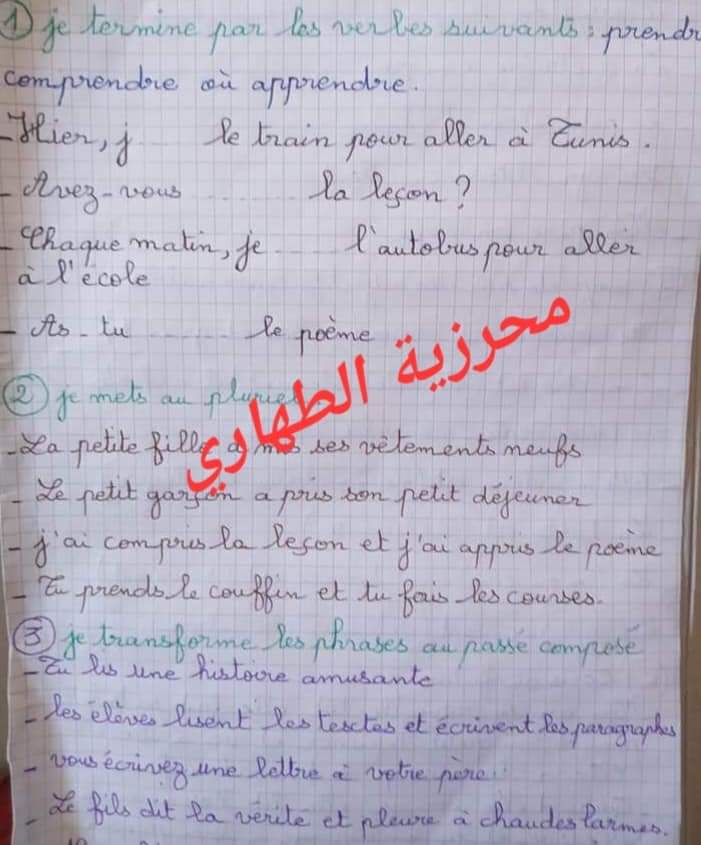 ① je termine par les verbes suivants : prendr
comprendre où apprendre.
- Hier, j ...... le train pour aller à Tunis.
- Avez-vous ............ la leçon ?
- Chaque matin, je ...... l'autobus pour aller
à l'école
- As-tu ............ le poème
محرزية الطهاري
② je mets au pluriel
- La petite fille a mis ses vêtements neufs
- Le petit garçon a pris son petit déjeuner
- j'ai compris la leçon et j'ai appris le poème
- Tu prends le couffin et tu fais les courses.
③ je transforme les phrases au passé composé
- Tu lis une histoire amusante
- les élèves lisent les textes et écrivent les paragraphes
- vous écrivez une lettre à votre père.
- Le fils dit la vérité et pleure à chaudes larmes.